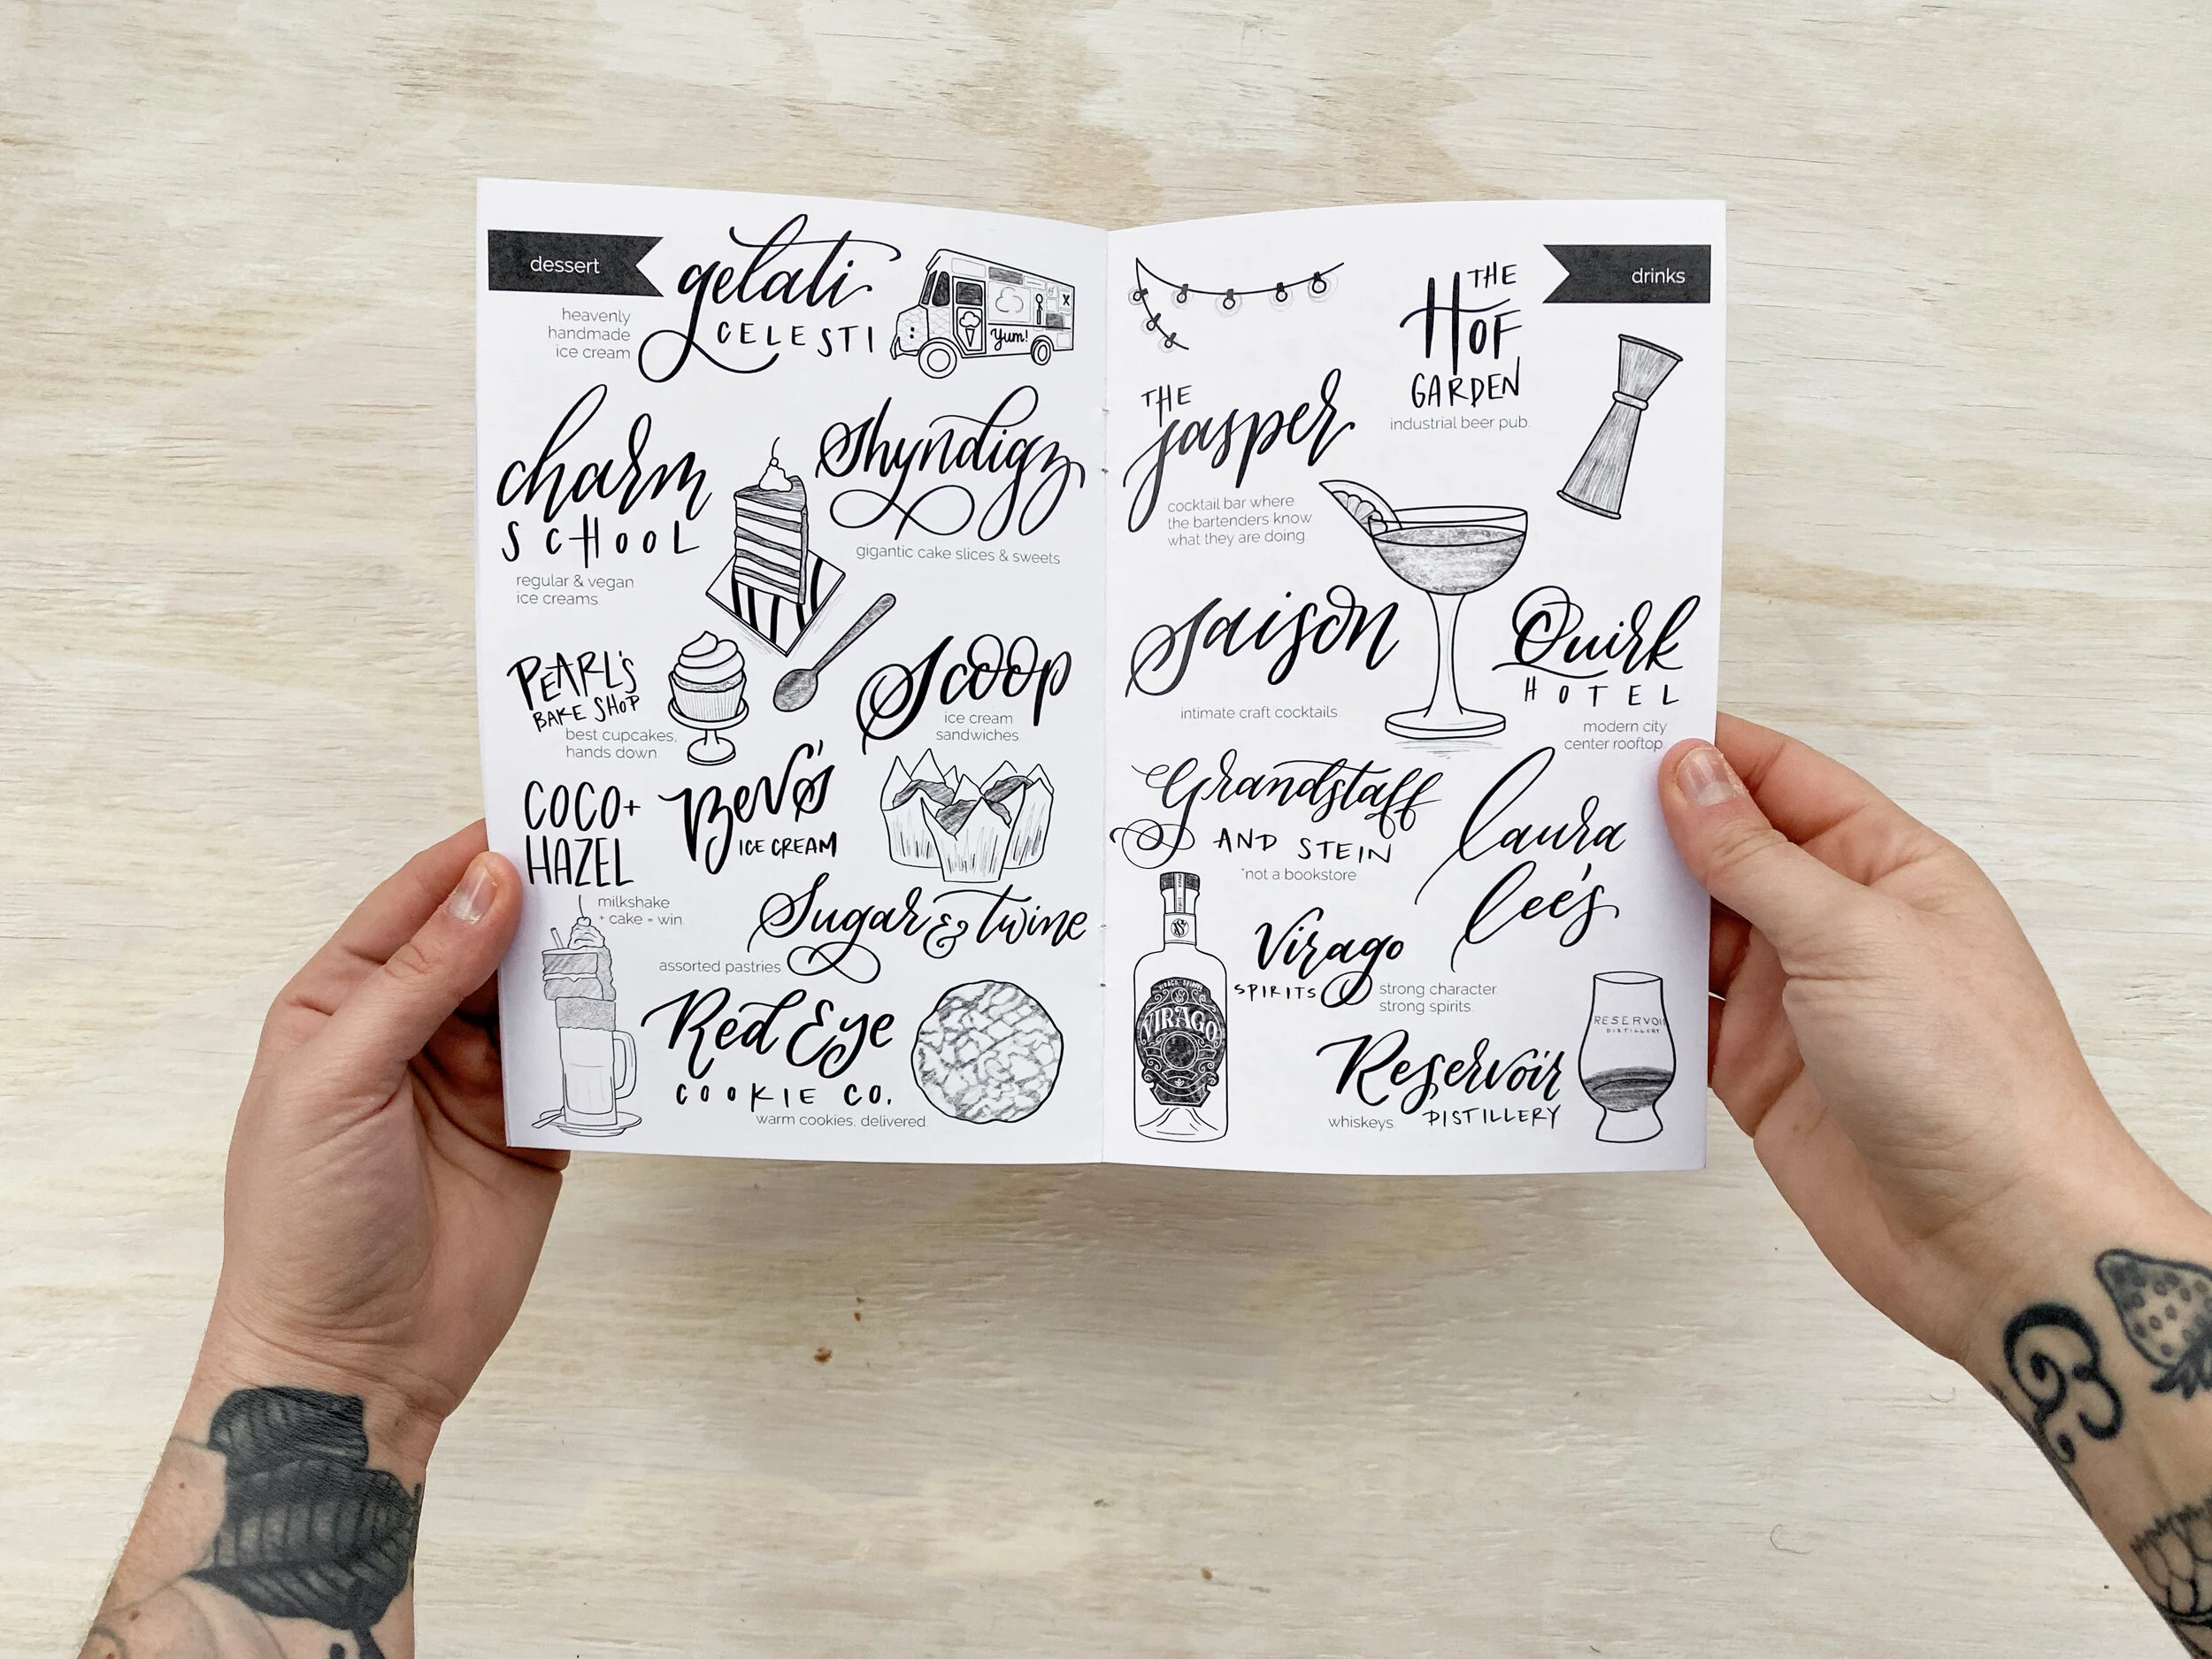 dessert
gelati
CELESTI
heavenly
handmade
ice cream
Yum!
charm
SCHOOL
regular & vegan
ice creams.
Shyndigz
gigantic cake slices & sweets
PEARL'S
BAKE SHOP
best cupcakes,
hands down
Scoop
ice cream
sandwiches
COCO+
HAZEL
milkshake
+ cake = win.
Bev's
ICE CREAM
Sugar & twine
assorted pastries
Red Eye
COOKIE CO.
warm cookies, delivered.
drinks
THE
HOF
GARDEN
industrial beer pub.
THE
jasper
cocktail bar where
the bartenders know
what they are doing
saison
intimate craft cocktails
Quirk
HOTEL
modern city
center rooftop
Grandstaff
AND STEIN
*not a bookstore
laura
lee's
Virago
SPIRITS
strong character.
strong spirits.
VIRAGO SPIRITS
VIRAGO
Reservoir
DISTILLERY
whiskeys.
RESERVOIR
DISTILLERY